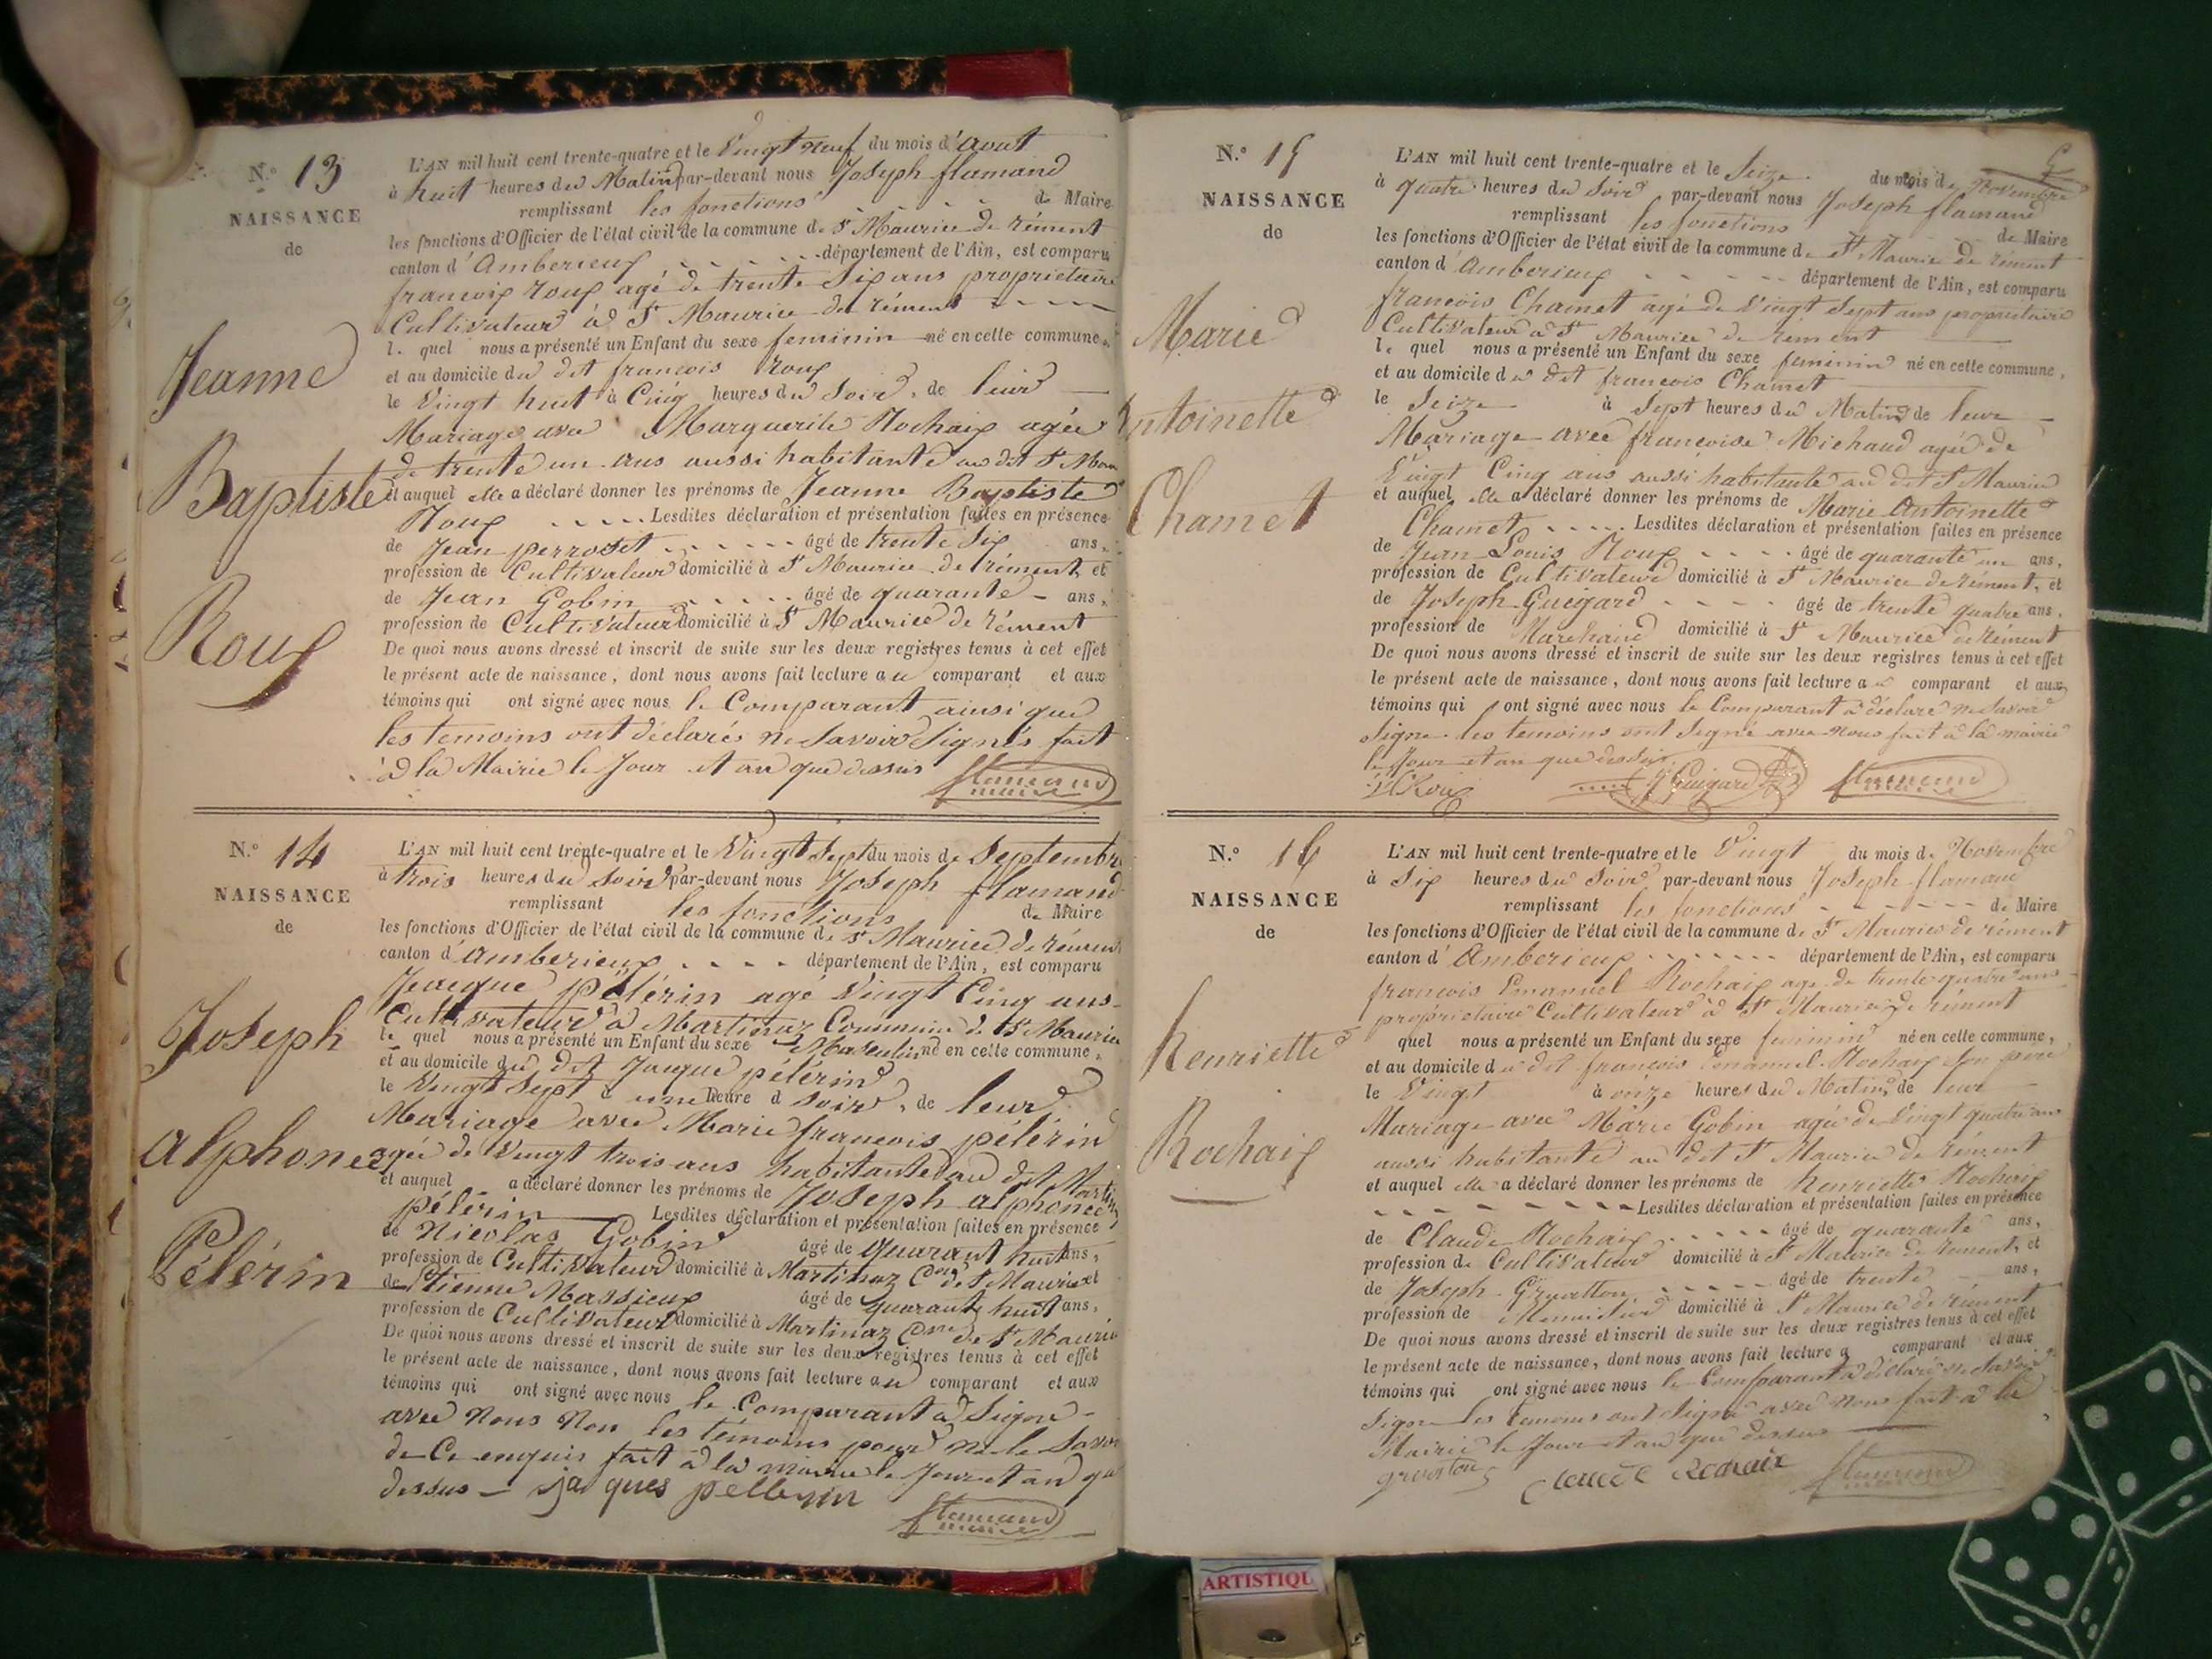 N.º 13
NAISSANCE
de
Jeanne
Baptiste
Roux
L'AN mil huit cent trente-quatre et le Vingt neuf du mois d'Aout
à huit heures du Matin par-devant nous Joseph flamand
remplissant les fonctions de Maire
les fonctions d'Officier de l'état civil de la commune de St Maurice de rément
canton d'Amberieux département de l'Ain, est comparu
francoix roux agé de trente Six ans proprietaire
Cultivateur à St Maurice de rément
le quel nous a présenté un Enfant du sexe feminin né en cette commune,
et au domicile du dit francois roux
le Vingt huit à Cinq heures du Soir, de leur
Mariage avec Marguerite Rochaix agée
de trente un ans aussi habitante au dit St Mau
et auquel elle a déclaré donner les prénoms de Jeanne Baptiste
Roux Lesdites déclaration et présentation faites en présence
de Jean perroset âgé de trente Six ans,
profession de Cultivateur domicilié à St Maurice de rément, et
de Jean Gobin âgé de quarante ans,
profession de Cultivateur domicilié à St Maurice de rément
De quoi nous avons dressé et inscrit de suite sur les deux registres tenus à cet effet
le présent acte de naissance, dont nous avons fait lecture au comparant et aux
témoins qui ont signé avec nous le Comparant ainsi que
les temoins ont déclarés ne Savoir Signés fait
à la Mairie le Jour et an que dessus flamand
maire
N.º 14
NAISSANCE
de
Joseph
alphonce
Pélérin
L'AN mil huit cent trente-quatre et le Vingt Sept du mois de Septembre
à trois heures du Soir par-devant nous Joseph flamand
remplissant les fonctions de Maire
les fonctions d'Officier de l'état civil de la commune de St Maurice de rément
canton d'amberieux département de l'Ain, est comparu
Jacque pélérin agé Vingt Cinq ans
Cultivateur à Martinaz Commune de St Maurice
le quel nous a présenté un Enfant du sexe Masculin né en cette commune,
et au domicile du dit Jacque pélérin
le Vingt Sept à une heure d Soir, de leur
Mariage avec Marie francois pélérin
agée de Vingt trois ans habitante au dit Martinaz
et auquel a déclaré donner les prénoms de Joseph alphonce
pélérin Lesdites déclaration et présentation faites en présence
de Nicolas Gobin âgé de quarant huit ans,
profession de Cultivateur domicilié à Martinaz Cne de St Maurice et
de Etienne Massieux âgé de quarante huit ans,
profession de Cultivateur domicilié à Martinaz Cne de St Maurice
De quoi nous avons dressé et inscrit de suite sur les deux registres tenus à cet effet
le présent acte de naissance, dont nous avons fait lecture au comparant et aux
témoins qui ont signé avec nous le Comparant a Signe
avec nous Non les témoins pour ne le Savoir
de Ce enquis fait à la mairie le Jour et an que
dessus jacques pellerin
flamand
maire
N.º 15
NAISSANCE
de
Marie
Antoinette
Chamet
L'AN mil huit cent trente-quatre et le Seize du mois de Novembre
à quatre heures du Soir par-devant nous Joseph flamand
remplissant les fonctions de Maire
les fonctions d'Officier de l'état civil de la commune de St Maurice de rément
canton d'Amberieux département de l'Ain, est comparu
francois Chamet agé de Vingt Sept ans proprietaire
Cultivateur à St Maurice de rément
le quel nous a présenté un Enfant du sexe feminin né en cette commune,
et au domicile du dit francois Chamet
le Seize à Sept heures du Matin de leur
Mariage avec francoise Michaud agée de
Vingt Cinq ans aussi habitante au dit St Maurice
et auquel elle a déclaré donner les prénoms de Marie Antoinette
Chamet Lesdites déclaration et présentation faites en présence
de Jean Louis Roux âgé de quarante un ans,
profession de Cultivateur domicilié à St Maurice de rément, et
de Joseph Guigard âgé de trente quatre ans,
profession de Marchand domicilié à St Maurice de rément
De quoi nous avons dressé et inscrit de suite sur les deux registres tenus à cet effet
le présent acte de naissance, dont nous avons fait lecture au comparant et aux
témoins qui ont signé avec nous le Comparant a déclaré ne Savoir
Signe les temoins ont Signé avec nous fait à la mairie
le Jour et an que dessus
Roux J Guigard flamand
N.º 16
NAISSANCE
de
henriette
Rochaix
L'AN mil huit cent trente-quatre et le Vingt du mois de Novembre
à Six heures du Soir par-devant nous Joseph flamand
remplissant les fonctions de Maire
les fonctions d'Officier de l'état civil de la commune de St Maurice de rément
canton d'Amberieux département de l'Ain, est comparu
francois Emanuel Rochaix age de trente quatre ans
proprietaire Cultivateur à St Maurice de rément
quel nous a présenté un Enfant du sexe feminin né en cette commune,
et au domicile du dit francois Emanuel Rochaix Son père
le Vingt à onze heures du Matin, de leur
Mariage avec Marie Gobin agée de Vingt quatre ans
aussi habitante au dit St Maurice de rément
et auquel elle a déclaré donner les prénoms de henriette Rochaix
Lesdites déclaration et présentation faites en présence
de Claude Rochaix âgé de quarante ans,
profession de Cultivateur domicilié à St Maurice de rément, et
de Joseph Gruatton âgé de trente ans,
profession de domicilié à St Maurice de rément
De quoi nous avons dressé et inscrit de suite sur les deux registres tenus à cet effet
le présent acte de naissance, dont nous avons fait lecture a comparant et aux
témoins qui ont signé avec nous le Comparant a déclaré ne Savoir
Signe les temoins ont Signé avec nous fait à la
Mairie le Jour et an que dessus
gruaton claude Rochaix flamand
ARTISTIQU